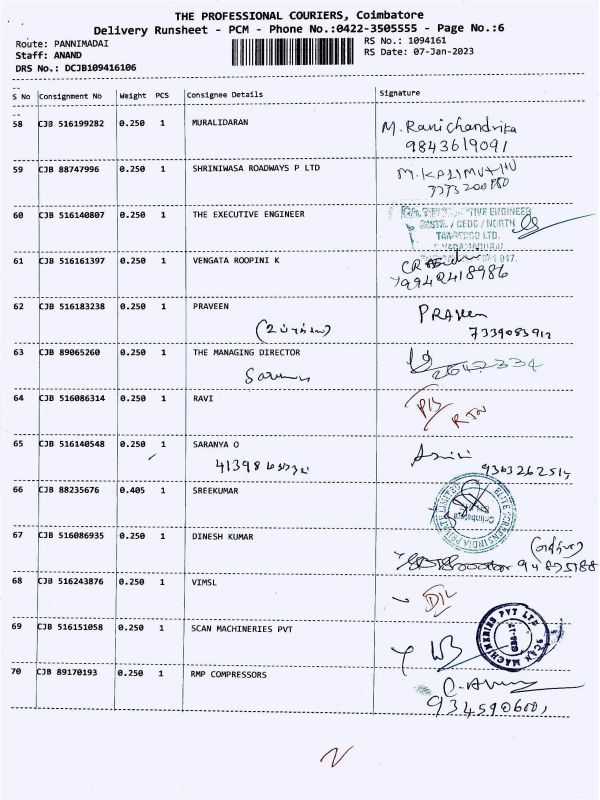 THE PROFESSIONAL COURIERS, Coimbatore
Delivery Runsheet - PCM - Phone No.:0422-3505555 - Page No.:6
Route: PANNIMADAI RS No.: 1094161
Staff: ANAND RS Date: 07-Jan-2023
DRS No.: DCJB109416106
S No Consignment No Weight PCS Consignee Details Signature
58 CJB 516199282 0.250 1 MURALIDARAN M. Ranichandrika
9843619091
59 CJB 88747996 0.250 1 SHRINIWASA ROADWAYS P LTD M. KALIMUTHU
60 CJB 516140807 0.250 1 THE EXECUTIVE ENGINEER
TIVE ENGINEER
/ CEDC / NORTH
TANGEDCO LTD.
61 CJB 516161397 0.250 1 VENGATA ROOPINI K
9942418986
62 CJB 516183238 0.250 1 PRAVEEN PRAVeen
7339083912
63 CJB 89065260 0.250 1 THE MANAGING DIRECTOR
2642334
64 CJB 516086314 0.250 1 RAVI
RTN
65 CJB 516140548 0.250 1 SARANYA O
41398 9363262514
66 CJB 88235676 0.405 1 SREEKUMAR
ELITE SCREENS INDIA PRIVATE LIMITED
Coimbatore
67 CJB 516086935 0.250 1 DINESH KUMAR
68 CJB 516243876 0.250 1 VIMSL D/L
69 CJB 516151058 0.250 1 SCAN MACHINERIES PVT
SCAN MACHINERIES PVT LTD
70 CJB 89170193 0.250 1 RMP COMPRESSORS